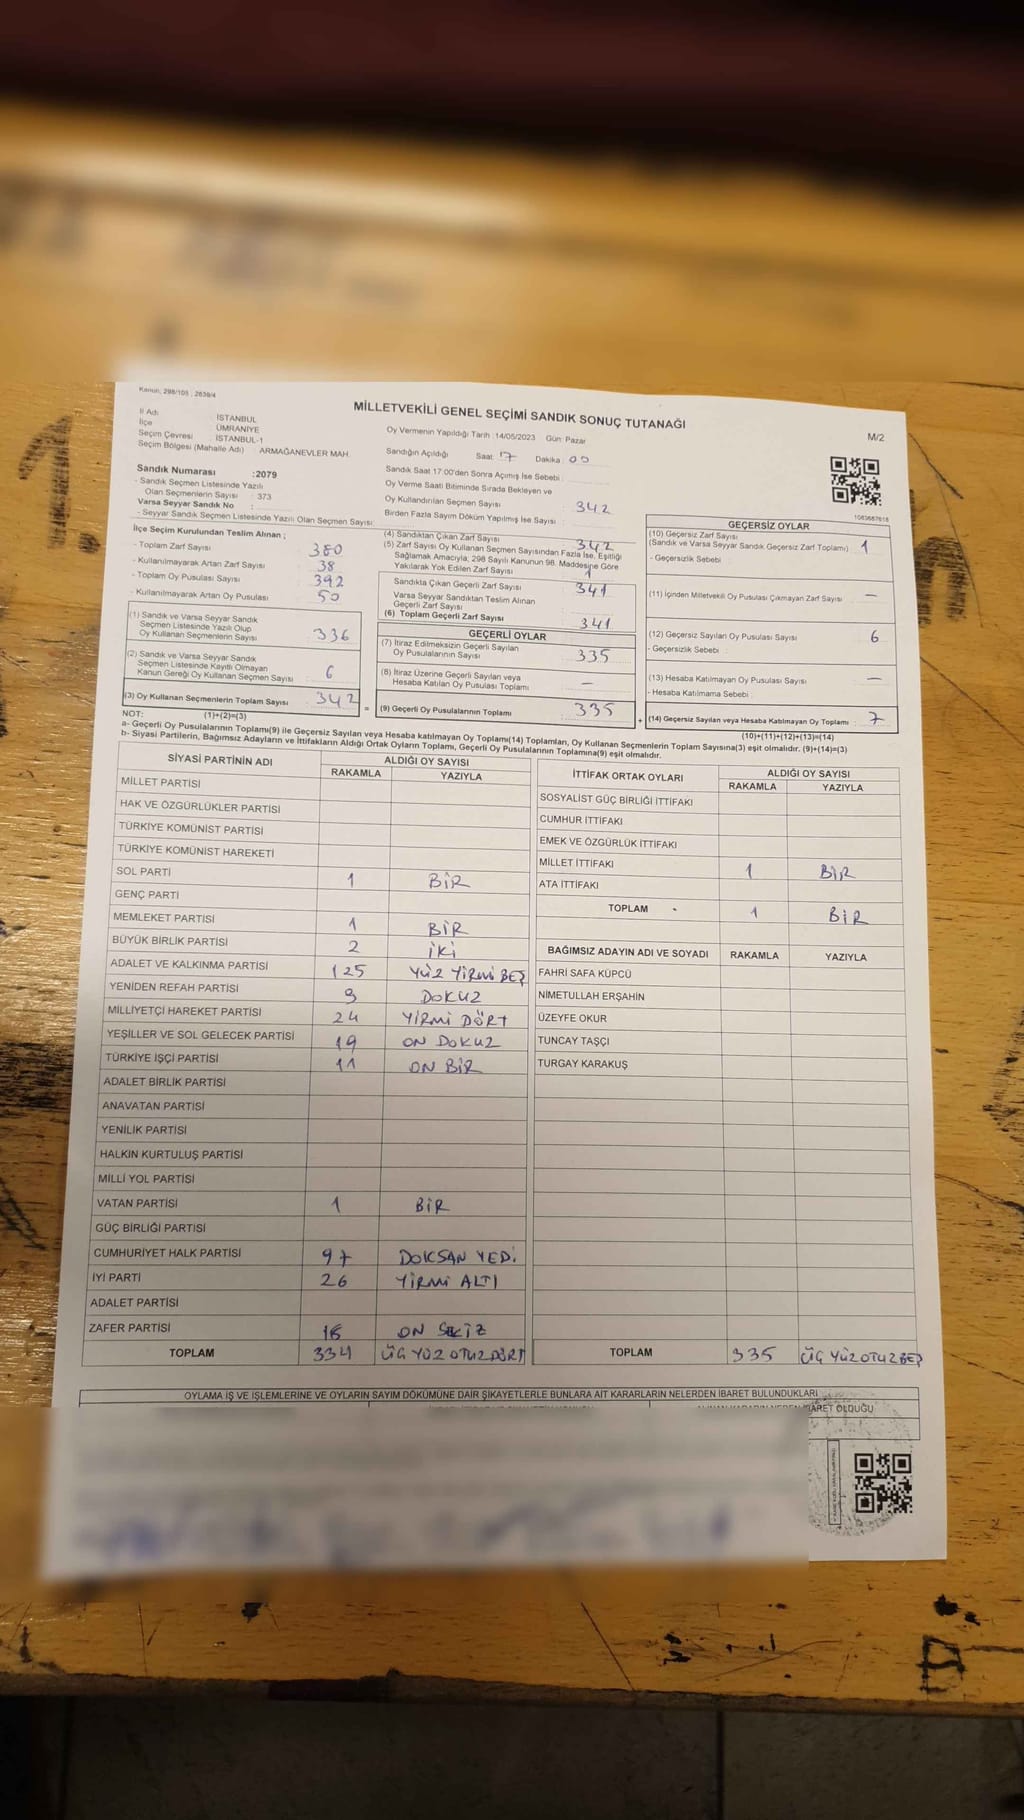 Kanun, 298/105 ; 2839/4
MİLLETVEKİLİ GENEL SEÇİMİ SANDIK SONUÇ TUTANAĞI
M/2
İl Adı : İSTANBUL
İlçe : ÜMRANİYE
Seçim Çevresi : İSTANBUL-1
Seçim Bölgesi (Mahalle Adı) : ARMAĞANEVLER MAH.
Sandık Numarası :2079
- Sandık Seçmen Listesinde Yazılı
Olan Seçmenlerin Sayısı : 373
Varsa Seyyar Sandık No :
- Seyyar Sandık Seçmen Listesinde Yazılı Olan Seçmen Sayısı:
Oy Vermenin Yapıldığı Tarih :14/05/2023 Gün: Pazar
Sandığın Açıldığı Saat: 17 Dakika: 00
Sandık Saat 17.00'den Sonra Açımış İse Sebebi :
Oy Verme Saati Bitiminde Sırada Bekleyen ve
Oy Kullandırılan Seçmen Sayısı : 342
Birden Fazla Sayım Döküm Yapılmış İse Sayısı :
1063687618
İlçe Seçim Kurulundan Teslim Alınan ;
- Toplam Zarf Sayısı : 380
- Kullanılmayarak Artan Zarf Sayısı : 38
- Toplam Oy Pusulası Sayısı : 392
- Kullanılmayarak Artan Oy Pusulası : 50
(1) Sandık ve Varsa Seyyar Sandık
Seçmen Listesinde Yazılı Olup
Oy Kullanan Seçmenlerin Sayısı : 336
(2) Sandık ve Varsa Seyyar Sandık
Seçmen Listesinde Kayıtlı Olmayan
Kanun Gereği Oy Kullanan Seçmen Sayısı : 6
(3) Oy Kullanan Seçmenlerin Toplam Sayısı : 342
(1)+(2)=(3)
(4) Sandıktan Çıkan Zarf Sayısı : 342
(5) Zarf Sayısı Oy Kullanan Seçmen Sayısından Fazla İse, Eşitliği
Sağlamak Amacıyla, 298 Sayılı Kanunun 98. Maddesine Göre
Yakılarak Yok Edilen Zarf Sayısı : 1
Sandıkta Çıkan Geçerli Zarf Sayısı : 341
Varsa Seyyar Sandıktan Teslim Alınan
Geçerli Zarf Sayısı :
(6) Toplam Geçerli Zarf Sayısı : 341
GEÇERLİ OYLAR
(7) İtiraz Edilmeksizin Geçerli Sayılan
Oy Pusulalarının Sayısı : 335
(8) İtiraz Üzerine Geçerli Sayılan veya
Hesaba Katılan Oy Pusulası Toplamı : —
= (9) Geçerli Oy Pusulalarının Toplamı : 335 +
GEÇERSİZ OYLAR
(10) Geçersiz Zarf Sayısı
(Sandık ve Varsa Seyyar Sandık Geçersiz Zarf Toplamı) : 1
- Geçersizlik Sebebi :
(11) İçinden Milletvekili Oy Pusulası Çıkmayan Zarf Sayısı : —
(12) Geçersiz Sayılan Oy Pusulası Sayısı : 6
- Geçersizlik Sebebi :
(13) Hesaba Katılmayan Oy Pusulası Sayısı : —
- Hesaba Katılmama Sebebi :
(14) Geçersiz Sayılan veya Hesaba Katılmayan Oy Toplamı : 7
(10)+(11)+(12)+(13)=(14)
NOT:
a- Geçerli Oy Pusulalarının Toplamı(9) ile Geçersiz Sayılan veya Hesaba katılmayan Oy Toplamı(14) Toplamları, Oy Kullanan Seçmenlerin Toplam Sayısına(3) eşit olmalıdır. (9)+(14)=(3)
b- Siyasi Partilerin, Bağımsız Adayların ve İttifakların Aldığı Ortak Oyların Toplamı, Geçerli Oy Pusulalarının Toplamına(9) eşit olmalıdır.
SİYASİ PARTİNİN ADI ALDIĞI OY SAYISI
RAKAMLA YAZIYLA
MİLLET PARTİSİ
HAK VE ÖZGÜRLÜKLER PARTİSİ
TÜRKİYE KOMÜNİST PARTİSİ
TÜRKİYE KOMÜNİST HAREKETİ
SOL PARTİ 1 BİR
GENÇ PARTİ
MEMLEKET PARTİSİ 1 BİR
BÜYÜK BİRLİK PARTİSİ 2 İKİ
ADALET VE KALKINMA PARTİSİ 125 YÜZ YİRMİ BEŞ
YENİDEN REFAH PARTİSİ 9 DOKUZ
MİLLİYETÇİ HAREKET PARTİSİ 24 YİRMİ DÖRT
YEŞİLLER VE SOL GELECEK PARTİSİ 19 ON DOKUZ
TÜRKİYE İŞÇİ PARTİSİ 11 ON BİR
ADALET BİRLİK PARTİSİ
ANAVATAN PARTİSİ
YENİLİK PARTİSİ
HALKIN KURTULUŞ PARTİSİ
MİLLİ YOL PARTİSİ
VATAN PARTİSİ 1 BİR
GÜÇ BİRLİĞİ PARTİSİ
CUMHURİYET HALK PARTİSİ 97 DOKSAN YEDİ
İYİ PARTİ 26 YİRMİ ALTI
ADALET PARTİSİ
ZAFER PARTİSİ 18 ON SEKİZ
TOPLAM 334 ÜÇ YÜZ OTUZ DÖRT
İTTİFAK ORTAK OYLARI ALDIĞI OY SAYISI
RAKAMLA YAZIYLA
SOSYALİST GÜÇ BİRLİĞİ İTTİFAKI
CUMHUR İTTİFAKI
EMEK VE ÖZGÜRLÜK İTTİFAKI
MİLLET İTTİFAKI 1 BİR
ATA İTTİFAKI
TOPLAM 1 BİR
BAĞIMSIZ ADAYIN ADI VE SOYADI RAKAMLA YAZIYLA
FAHRİ SAFA KÜPCÜ
NİMETULLAH ERŞAHİN
ÜZEYFE OKUR
TUNCAY TAŞÇI
TURGAY KARAKUŞ
TOPLAM 335 ÜÇ YÜZ OTUZ BEŞ
OYLAMA İŞ VE İŞLEMLERİNE VE OYLARIN SAYIM DÖKÜMÜNE DAİR ŞİKAYETLERLE BUNLARA AİT KARARLARIN NELERDEN İBARET BULUNDUKLARI